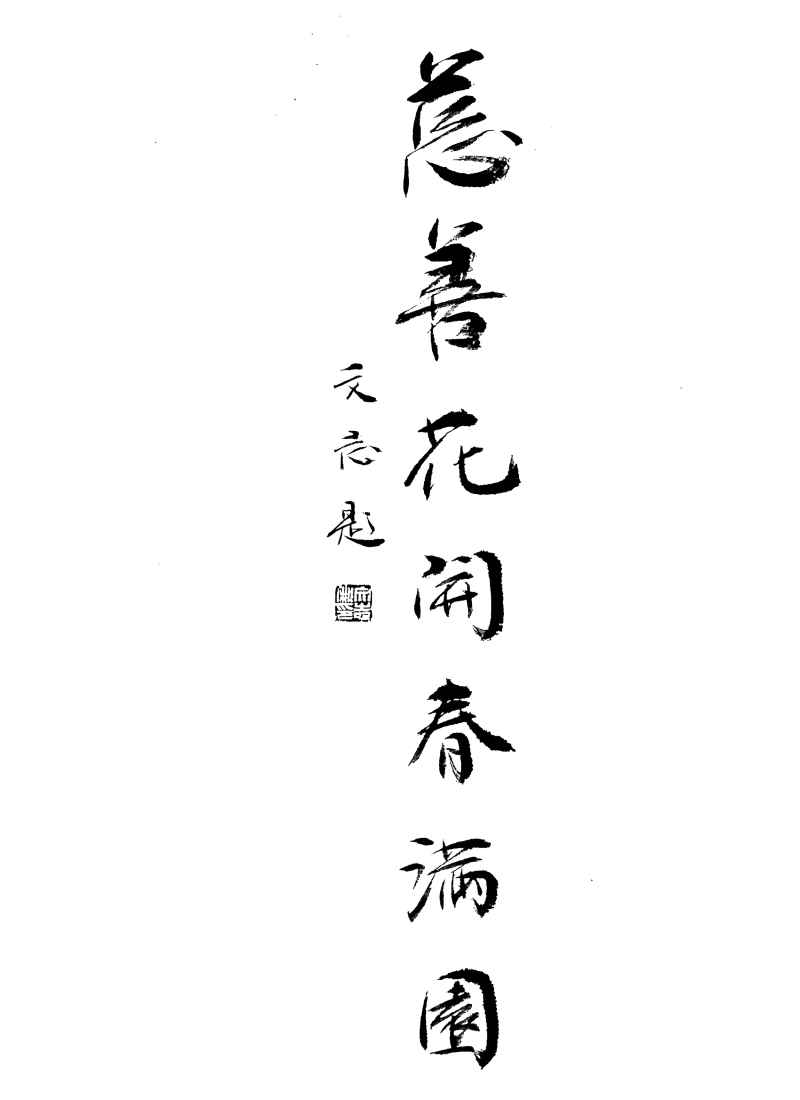 慈善花開春滿園
文志題